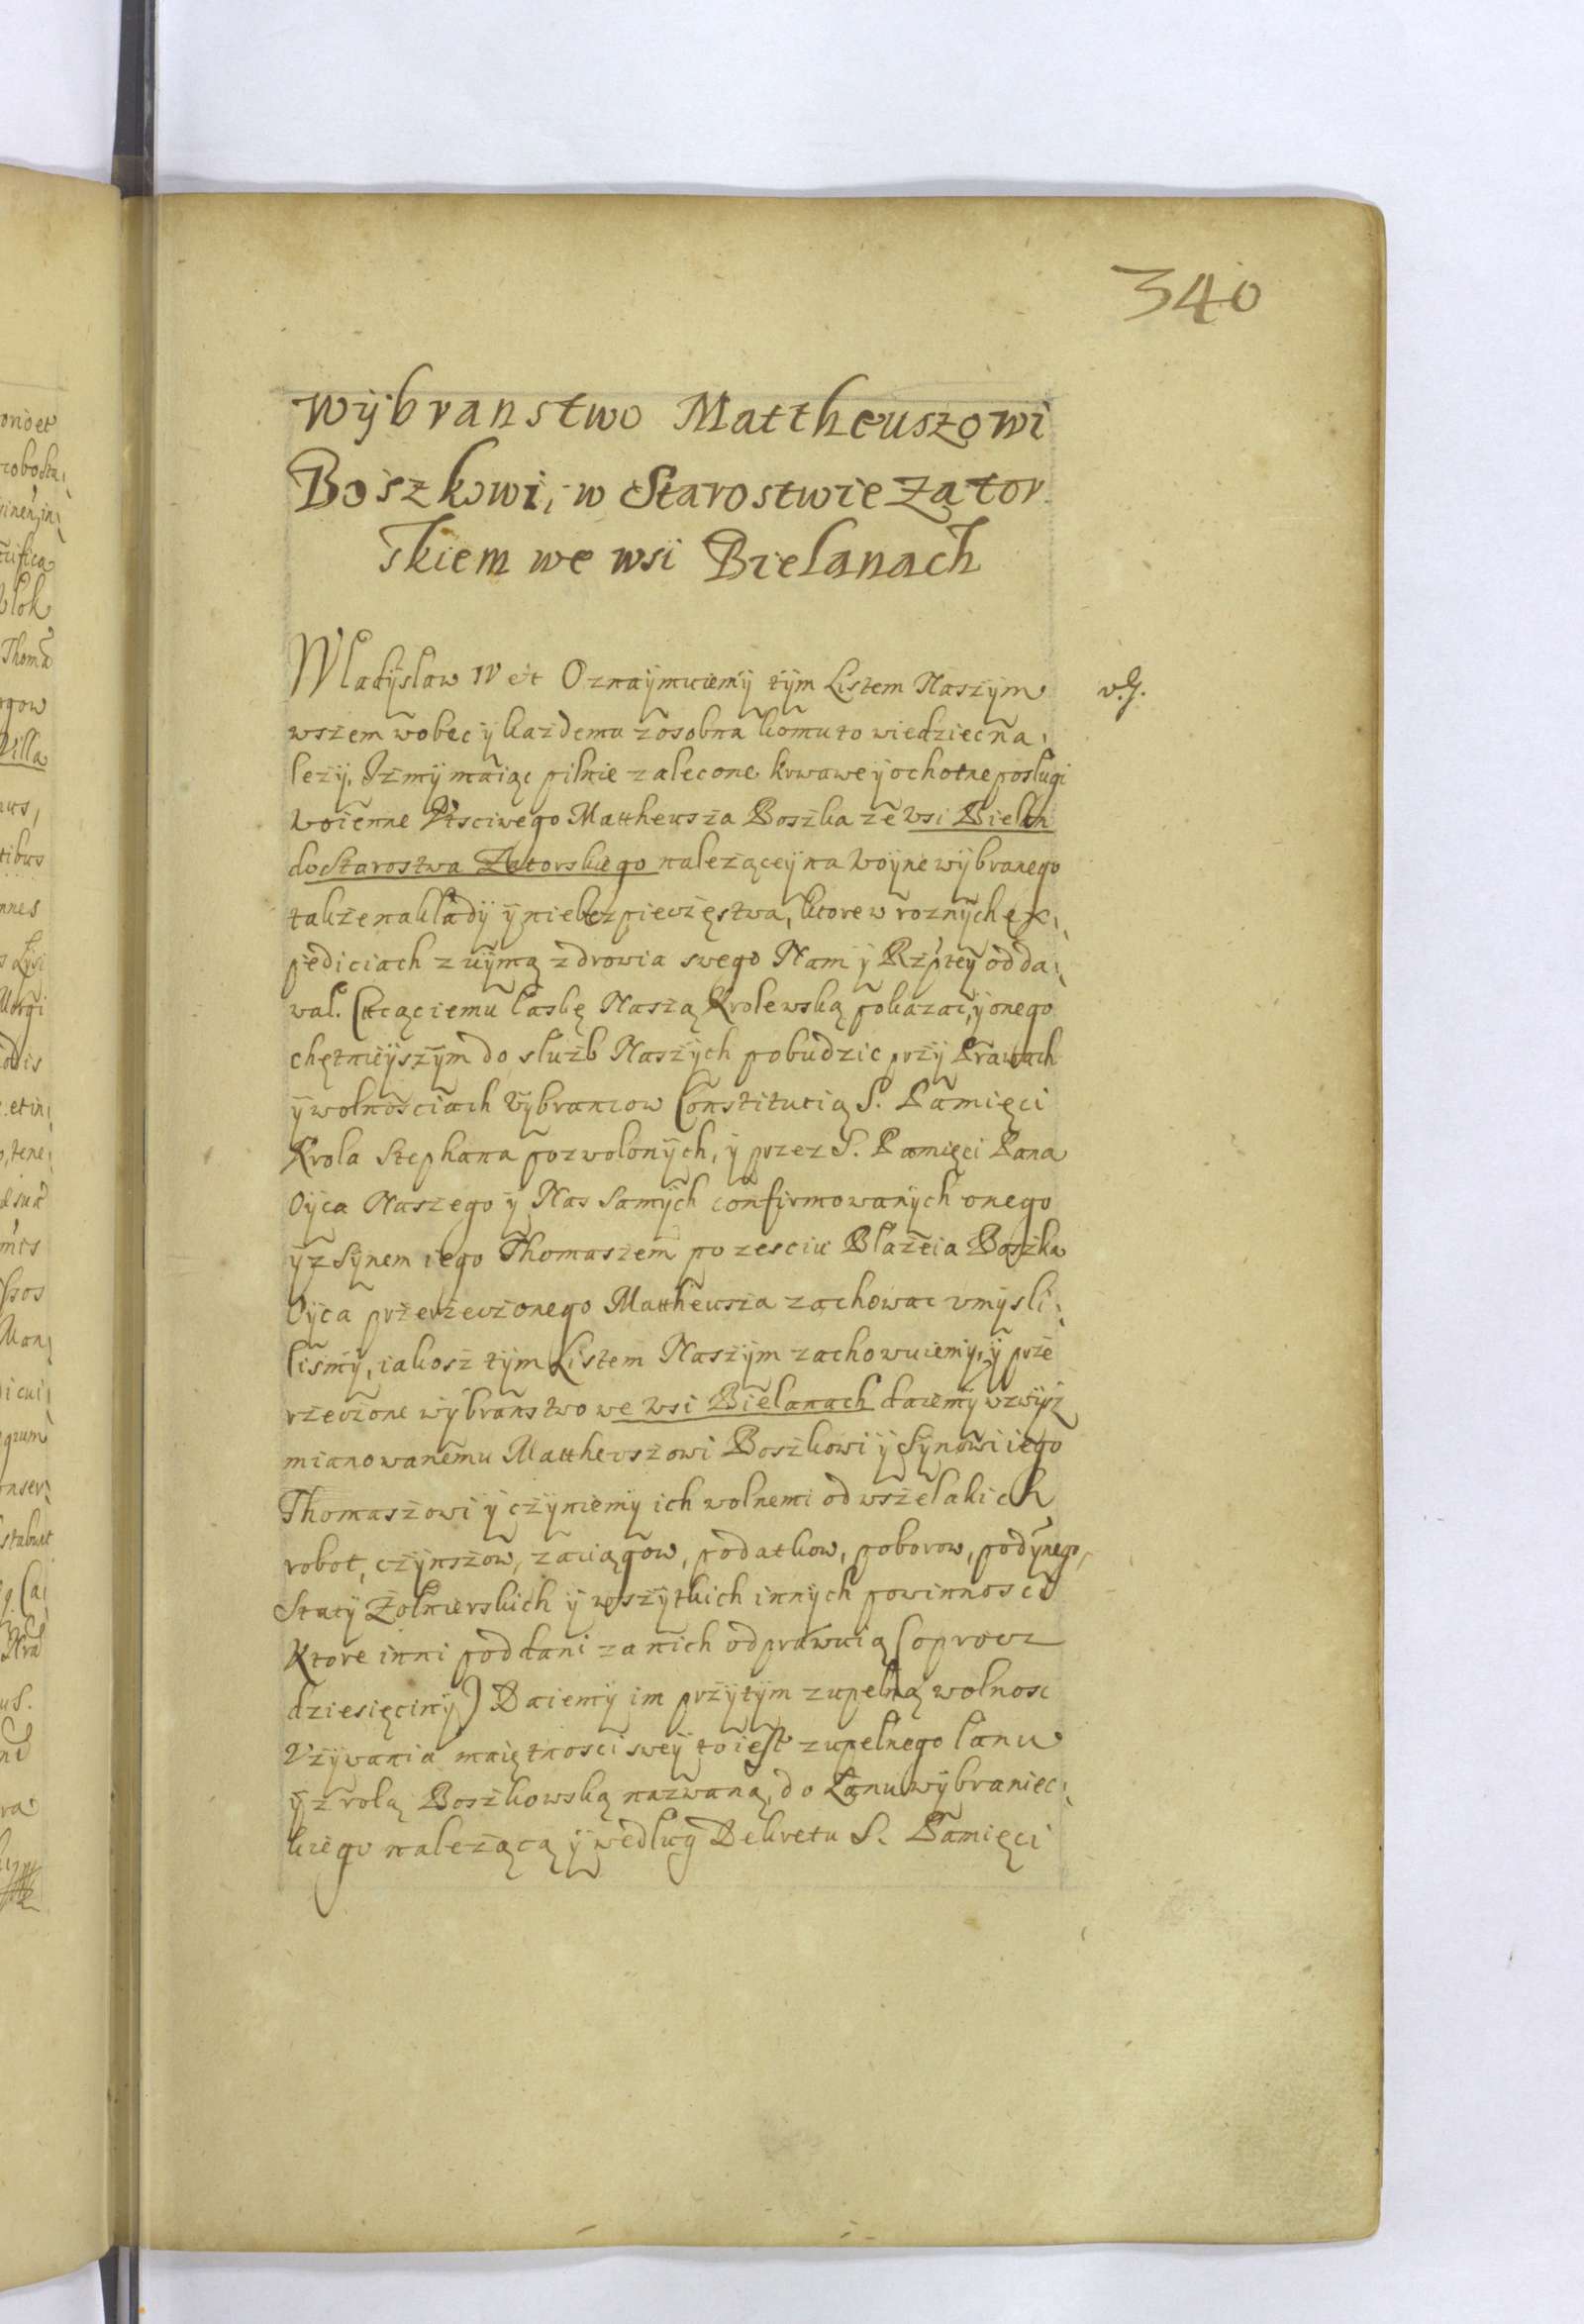 340
Wÿbranstwo Mattheuszowi
Boszkowi, w Starostwie Zator
skiem we wsi Bielanach
Wladÿslaw IV etc Oznaÿmuiemÿ tÿm Listem Naszÿm
v.g.
wszem wobec ÿ kazdemu zosobna komu to wiedziec na,
lezÿ, Iz mÿ maiąc pilnie zalecone krwawe ÿ ochotne poslugi
woienne Vcsciwego Mattheusza Boszka ze wsi Bielan
do Starostwa Zatorskiego nalezączeÿ na woÿne wÿbranego
takze nakladÿ ÿ niebezpieczęstwa, ktore w roznÿch ex,
pediciach z uÿmą zdrowia swego Nam ÿ Rzptey odda,
wal. Chcąc iemu laskę Naszą Krolewską pokazac, ÿ onego
chętnieÿszÿm do sluzb Naszÿch pobudzic przÿ Prawach
ÿ wolnosciach Wÿbrancow Constitucią S. Pamięci
Krola Stephana pozwolonÿch, ÿ przez S. Pamięci Pana
Oÿca Naszego ÿ Nas Samÿch confirmowanÿch onego
ÿ z Sÿnem iego Thomaszem po zesciu Blazeia Boszka
Oÿca przerzeczonego Mattheusza zachowac vmÿsli,
lismÿ, iakosz tÿm Listem Naszÿm zachowuiemÿ, ÿ prze
rzeczone wÿbranstwo we wsi Bielanach daiemÿ wzwÿz
mianowanemu Mattheuszowi Boszkowi ÿ Sÿnowi iego
Thomaszowi ÿ czÿniemÿ ich wolnemi od wszelakich
robot, czÿnszow, zaciągow, podatkow, poborow, podÿmnego,
Statÿ Zolnierskich ÿ wszÿtkich innÿch powinnosci
Ktore inni poddani za nich odprawuią (oprocz
dziesięcinÿ) Daiemÿ im przÿtÿm zupelną wolnosc
Vzÿwania maiętnosci sweÿ to iest zupelnego lanu
ÿ z rolą Boszkowską nazwaną, do Lanu wÿbraniec,
kiego nalezącą ÿ wedlug Dekretu S. Pamięci